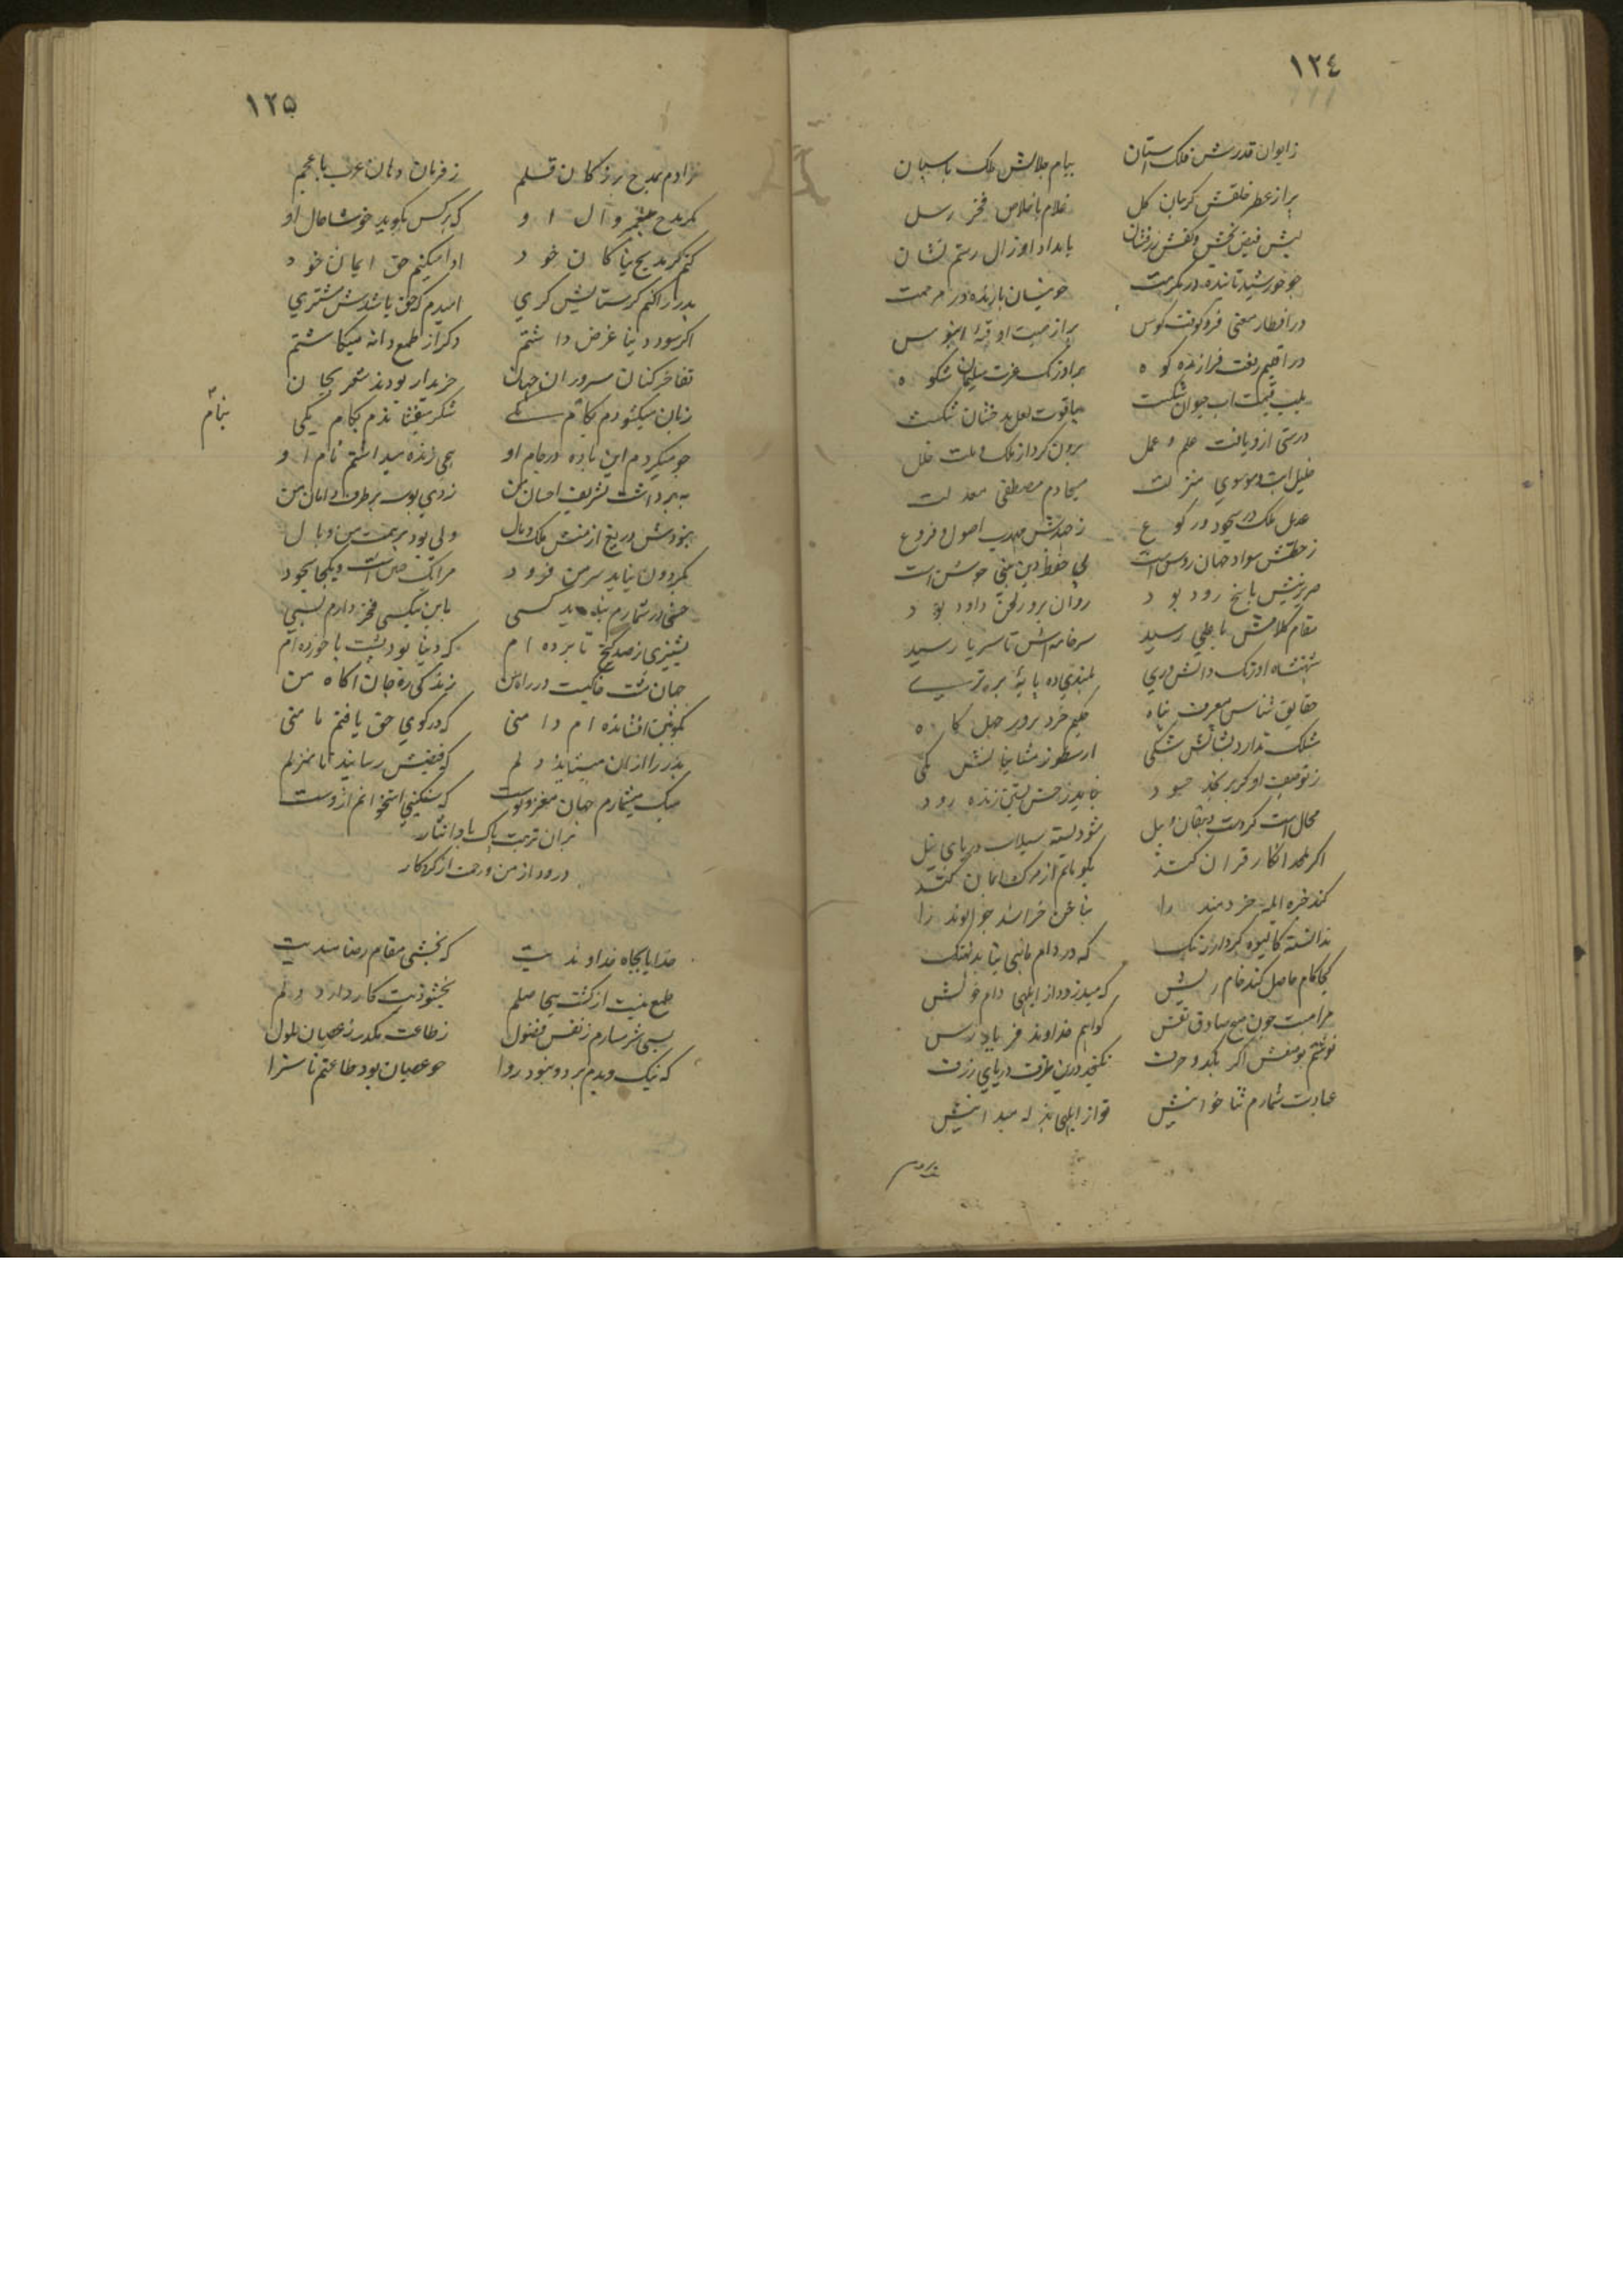 ١٢٤
ز ایوان قدرش فلک استان ببام جلالش ملک پاسبان
پر از عطر خلقش کریبان کل غلام باخلاص فخر رسل
فیض بخش و کفش زرفشان
چو خورشید تابنده در مکرمت چو نیسان بارنده در مرحمت
در اقطار معنی فرو کوفت کوس پر از صیت او
در اقلیم رفعت فرازنده کوه بر اورنک عزت سلیمان شکوه
بلب قیمت اب حیوان شکست بیاقوت لعل بدخشان شکست
درستی ازو یافت علم و عمل برون کرد از ملک و ملت خلل
خلیل است و موسوی منزلت مسیحا دم مصطفی معدلت
عدیل ملک در سجود و رکوع ز جدش مهذب اصول و فروع
ز خطش سواد جهان روشن است پی حفظ دین نبی جوشن است
صریرش پاسخ رود بود روان پرور لحن داود بود
مقام کلامش باعلی رسید سر خامه اش تا رسید
شهنشاه اورنک دانش وری بلندی ده پایه برتری
حقایق شناس معارف پناه حکیم خرد پرور جهل کاه
شکی ارسطو ز مشائیانش یکی
ز توصیف او کر برنجد حسود نیاید ز خس بستن زنده رود
محال است کردن شود بسته سیلاب دریای نیل
اکر ملحد انکار قران کند بکو ماتم از مرک ایمان کند
کند خره ابله خردمند را بناخن خراشد جو الوند را
ندانسته کالیوه کردار ننک که در دام ماهی نیاید نهنک
کجا کام حاصل کند خام ریش که میدرد از ابلهی دام خویش
مرا هست چون صبح صادق نفس کواهم خداوند فریادرس
نوشتم بوصفش اکر یکدو حرف نکنجد درین ظرف دریای ژرف
عبادت شمارم ثنا خوانیش تو از ابلهی بذله میدانیش
١٢٥
نزادم بمدح بزرکان قلم ز فرمان دهان عرب یا عجم
مکر مدح پیغمبر و آل او که هر کس بکوید خوشا حال او
کنم کر مدیح نیاکان خود ادا میکنم حق ایمان خود
پدر را کنم کر ستایش کری امیدم که حق باشدش مشتری
اکر سود دنیا غرض داشتم دکر از طمع دانه میکاشتم
تفاخر کنان سروران جهان خریدار بودند شعرم بجان
زبان میکشودم بکام یکی شکر میفشاندم بکام یکی
بنام
چو میکردم این باده در جام او همی زنده میداشتم نام او
تشریف احسان من زدی بوسه بر طرف دامان من
نبودش دریغ از منش ملک و مال ولی بود بر همت من وبال
بکردون نیاید سر من فرود مرا یک جبین است و یکجا سجود
خسی در شمارم نیاید کسی باین بیکسی فخر دارم بسی
پشیزی ز صد کنج نابرده ام که دنیا بود پشت پا خورده ام
جهان مشت خاکیست در راه من زند کی ره جان اکاه من
بکونین افشانده ام دامنی که در کوی حق یافتم مامنی
پدر را از ان میستاید دلم که فیضش رسانید تا منزلم
سبک میشمارم جهان مغز و پوست که سنکینی استخوانم ازوست
بران تربت پاک بادا نثار
درود از من و رحمت از کردکار
خدایا بجاه خداوندیت که بخشی مقام رضامندیت
طمع نیست از کشت بیحاصلم بخشودنت کار دارد دلم
بسی شرمسارم ز نفس فضول ز طاعت مکدر ز عصیان ملول
که نیک و بدم هر دو نبود روا چو عصیان بود طاعتم ناسزا